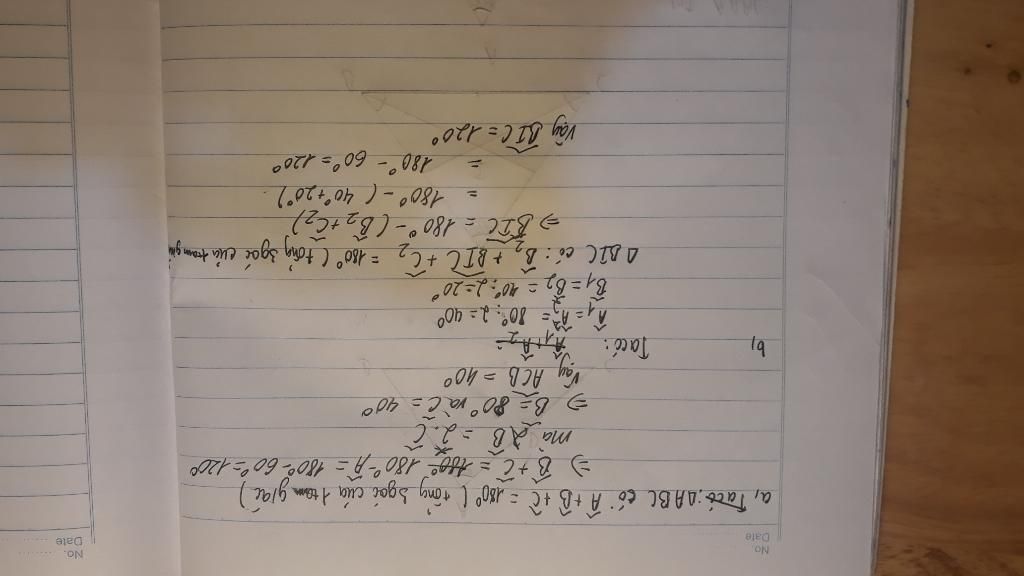 No.
Date
a, Ta có: ΔABC có Â + B̂ + Ĉ = 180° (tổng 3 góc của 1 tam giác)
⇒ B̂ + Ĉ = 180° 180° - Â = 180° - 60° = 120°
mà B̂ = 2.Ĉ
⇒ B̂ = 80° và Ĉ = 40°
Vậy ACB = 40°
b, Ta có: Â1 + Â2
Â1 = Â2 = 80°: 2 = 40°
B̂1 = B̂2 = 40°: 2 = 20°
Δ BIC có: B̂2 + BIC + Ĉ2 = 180° (tổng 3 góc của 1 tam giác
⇒ BIC = 180° - (B̂2 + Ĉ2)
= 180° - (40° + 20°)
= 180° - 60° = 120°
Vậy BIC = 120°
No.
Date